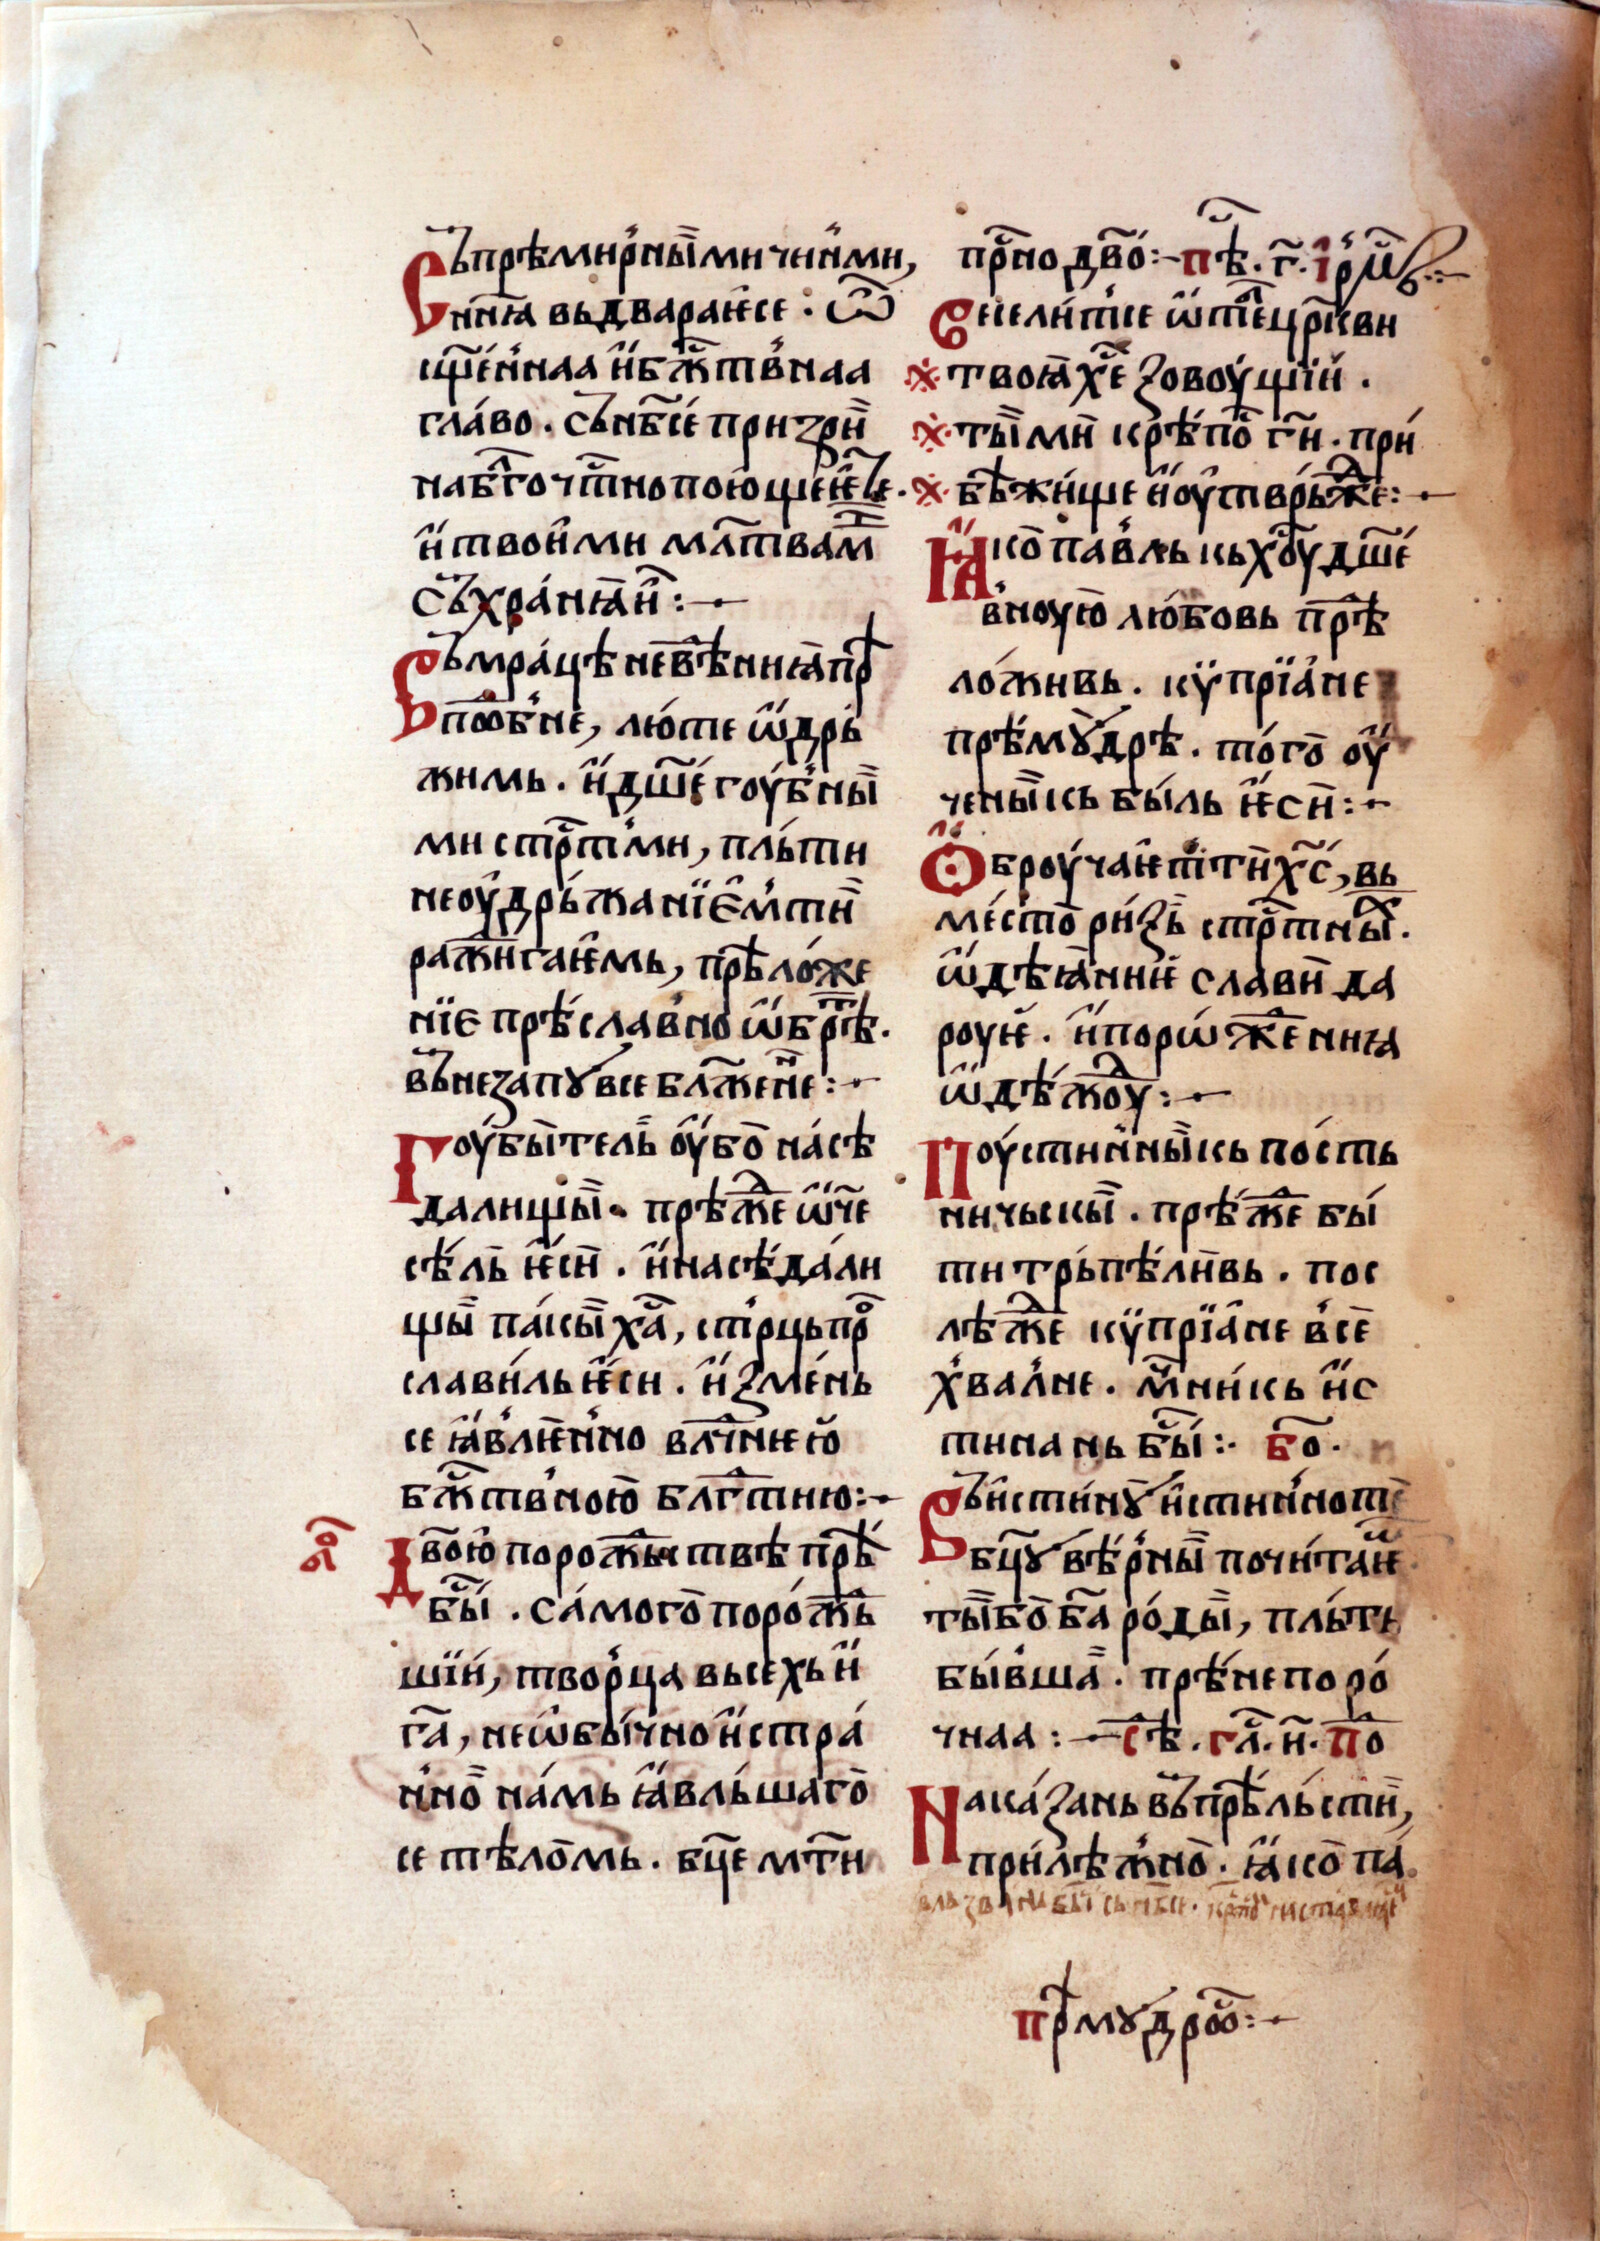 Съпрѣмирнꙑ́ми чи́нми,
нинꙗ вьдвараѥсе · ѿ
сщ҃е́ннаа и҆ бжⷭ҇твнаа
гла́во · съ нб҃се́ призрѝ
на блг҃очⷭ҇тно пою́щеѥ те ·
и҆ твои́ми мл҃твамⷤи
съхра́нꙗѥ҆ :—
Въ мра́цѣ невѣ́нїꙗ прⷣ
пⷪбне, лю́те ѡ҆дрь
жимь · и҆ дш҃е́гоубнꙑ
ми стрⷭ҇тми, пль́ти
неѹдрь́жанїемь тѝ
ражи́гаѥмь, прѣло́же
нїе прѣ́славно ѡ҆брѣ́те ·
въ незапꙋ́ все бл҃же́нне :—
Гоубы́тель ѹ҆бо на сѣ
далищꙑ · прѣ́же ѡ҆че
сѣ́ль ѥ҆сѝ · и҆ на сѣда́ли
щꙑ па́кꙑ хⷭ҇а, стрⷭ҇ць про
слави́ль ѥ҆си · и҆змѣ́нь
се ꙗ҆влѥ́нно влⷣчнею
бжⷭ҇твною блгⷣтию :—
Двою́ порожьствѣ прѣ
бꙑⷭ҇ · са́мого поро́жь
шїи, творца вьсехь и҆
га҃, неѡбы́чно и҆ стра́
нно на́мь ꙗ҆вль́шаго
се тѣломь · бц҃е мт҃и
прⷭ҇но дв҃о :— пѣ · г҃ · і҆рмⷭ҇ь :—
Веселитсе ѡ҆ тебѣ црⷦ҇ви
твоꙗ хⷭ҇е зовоу́щїи ·
тꙑ мѝ крѣ́пⷭ҇ г҃и · при
бѣ́жище и҆ ѹ҆тврь́же :—
Ꙗ҆ко павль кь хоу дш҃е́
вноую любовь прѣ
ло́живь · кѷпрїа́не
прѣмꙋ́дре · то́го ѹ҆
ченꙑкь бꙑль ѥ҆сѝ :—
Ѡ҆броу́чаѥть тѝ хⷭ҇ь, вь
ме́сто ри́зь стрⷭ҇тнꙑⷯ ·
ѡ҆дѣꙗ́ниѥ славѝ да
роуѥ · и҆ порѡже́ниꙗ
ѡ҆дѣ́ждоу :—
Поу́стиннꙑкь по́сть
ничьскꙑ · прѣ́же бꙑ́
ти трьпѣ́ливь · пос
лѣ́же кѷпрїа́не все
хва́лне · мⷱ҇ни́кь и҆с
тинань бꙑⷭ҇ :· бо҃ ·
Въ и҆́стинꙋ и҆стинноте
бц҃ꙋ вѣ́рнꙑ почи́таѥⷨ
тꙑ бо ба҃ ро́дꙑ, пль́ть
бꙑ́вша · прѣ́непоро́
чнаа :— сѣ · гла҃ · и҃ · по
Нака́зань въ прѣ́льсти,
прилѣ́жно · ꙗ҆ко па́
вль зва́нь бꙑⷭ҇ сь нб҃се ·
прⷣмꙋдроⷭ҇ :—